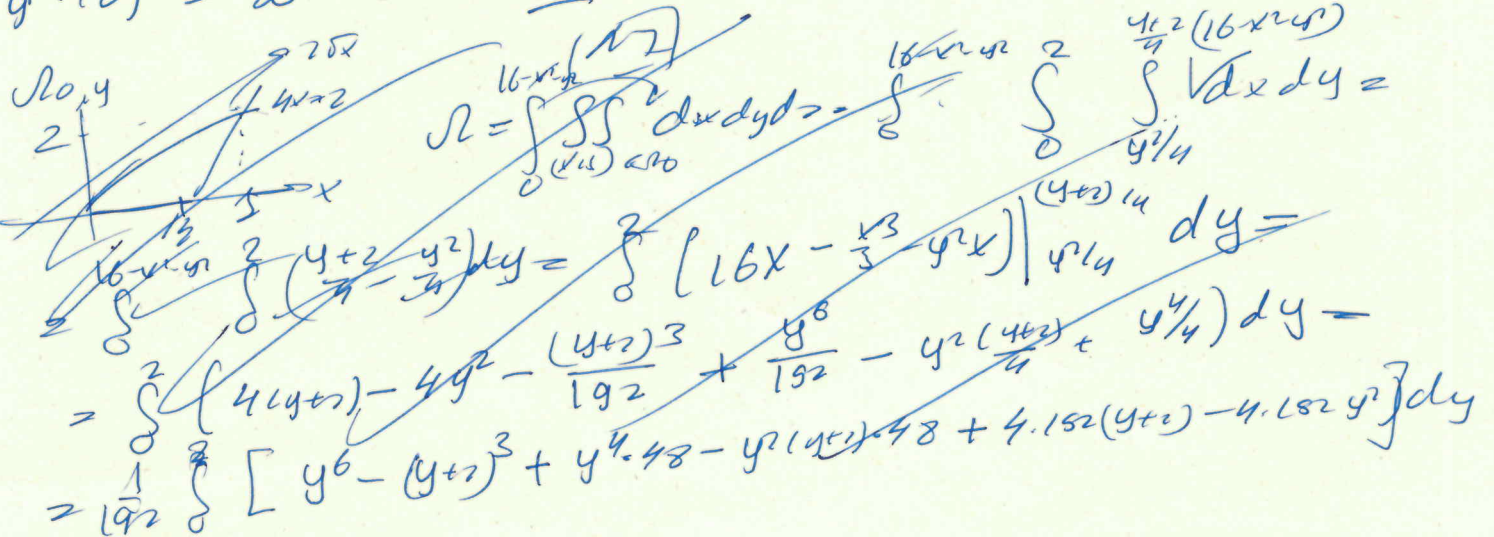 Ω₀ y 2√x
2 4x-2
x
Ω = ∫₀^{16-x²-y²} ∬_{(x,y)∈Ω₀} dxdydz = ∫₀^{16-x²-y²} ∫₀² ∫_{y²/4}^{(y+2)/4} (16-x²-y²) dxdy =
= ∫₀^{16-x²-y²} ∫₀² ((y+2)/4 - y²/4) dy = ∫₀² (16x - x³/3 - y²x)|_{y²/4}^{(y+2)/4} dy =
= ∫₀² (4(y+2) - 4y² - (y+2)³/192 + y⁶/192 - y²(y+2)/4 + y⁴/4) dy =
= 1/192 ∫₀² [y⁶ - (y+2)³ + y⁴·48 - y²(y+2)·48 + 4·192(y+2) - 4·192y²] dy